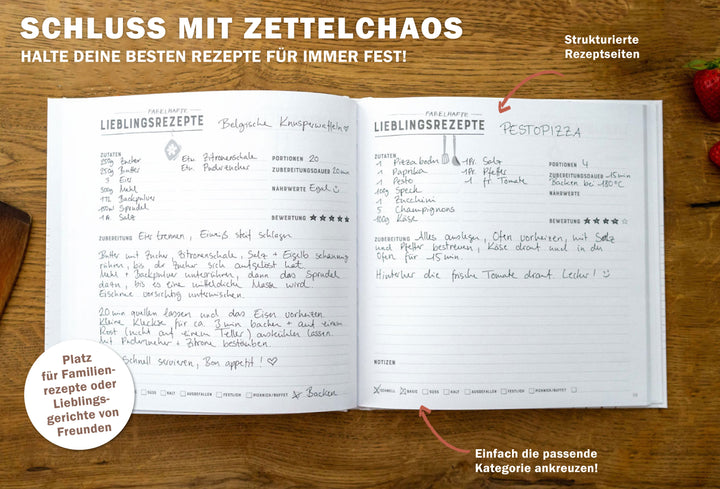 SCHLUSS MIT ZETTELCHAOS
HALTE DEINE BESTEN REZEPTE FÜR IMMER FEST!
Strukturierte
Rezeptseiten
FABELHAFTE
LIEBLINGSREZEPTE Belgische Knusperwaffeln
ZUTATEN
250g Zucker Etw. Zitronenschale PORTIONEN 20
250g Butter Etw. Puderzucker ZUBEREITUNGSDAUER 20min
5 Eier NÄHRWERTE Egal
300g Mehl
1TL Backpulver
Sprudel
1 Salz BEWERTUNG
ZUBEREITUNG Eier trennen, Eiweiß steif schlagen
Butter mit Zucker, Zitronenschale, Salz + Eigelb schaumig
rühren, bis der Zucker sich aufgelöst hat.
Mehl + Backpulver unterrühren, dann das Sprudel
dazu, bis es eine Masse wird.
Eischnee vorsichtig untermischen.
20min quellen lassen und das Eisen vorheizen.
Kleine Kleckse für ca. 3 min backen + auf einem
Rost (nicht auf einem Teller) auskühlen lassen.
Mit Puderzucker + Zitrone bestäuben.
Schnell servieren, Bon appetit!
SÜSS KALT AUSGEFALLEN FESTLICH PICKNICK/BUFFET Backen
FABELHAFTE
LIEBLINGSREZEPTE PESTOPIZZA
ZUTATEN
1 Pizzaboden 1Pr. Salz PORTIONEN 4
1 Paprika 1Pr. Pfeffer ZUBEREITUNGSDAUER 15min
1 Pesto 1 fr. Tomate Backen bei 180°C
100g Speck NÄHRWERTE
1 Zucchini
5 Champignons
100g Käse BEWERTUNG
ZUBEREITUNG Alles auslegen, Ofen vorheizen, mit Salz
und Pfeffer bestreuen, Käse drauf und in den
Ofen für 15 min.
Hinterher die frische Tomate drauf. Lecker!
NOTIZEN
SCHNELL BASIC SÜSS KALT AUSGEFALLEN FESTLICH PICKNICK/BUFFET
Platz
für Familien-
rezepte oder
Lieblings-
gerichte von
Freunden
Einfach die passende
Kategorie ankreuzen!